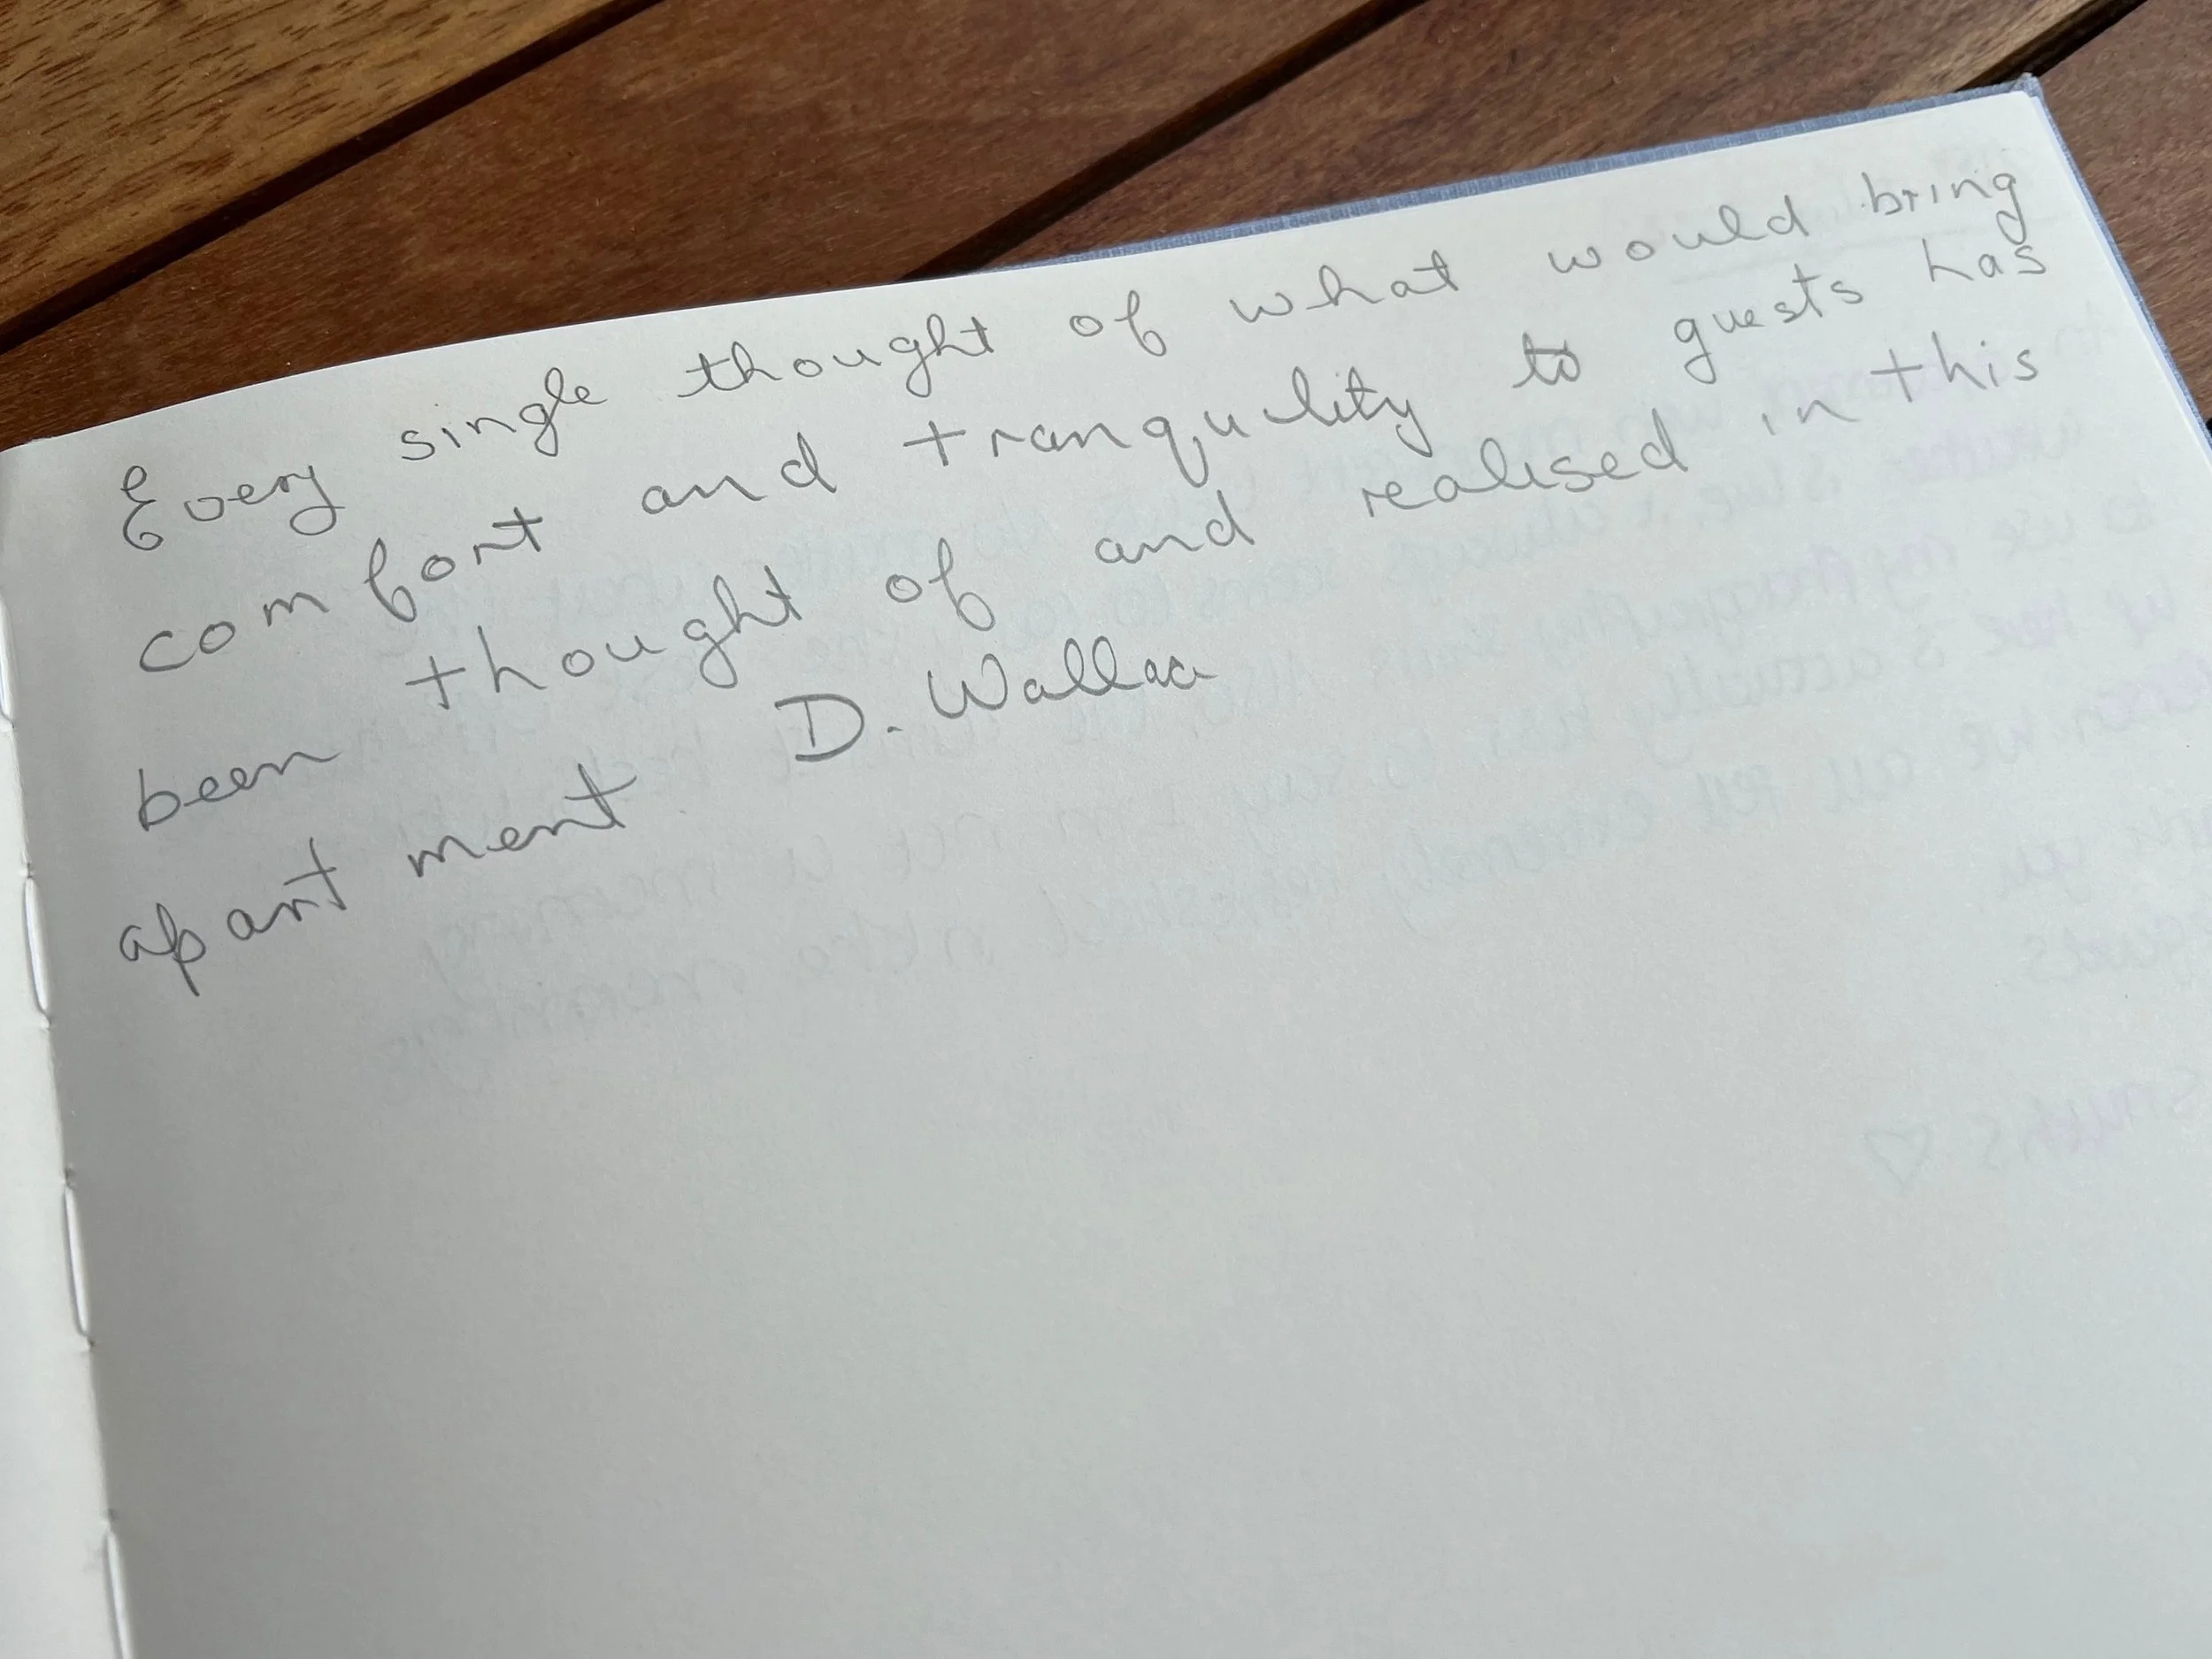 Every single thought of what would bring
comfort and tranquility to guests has
been thought of and realised in this
apartment D. Wallace